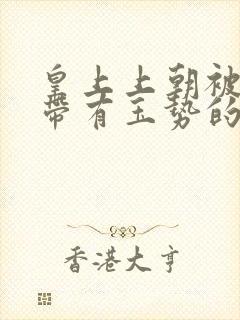 皇上上朝被
带有玉势的
香港大亨